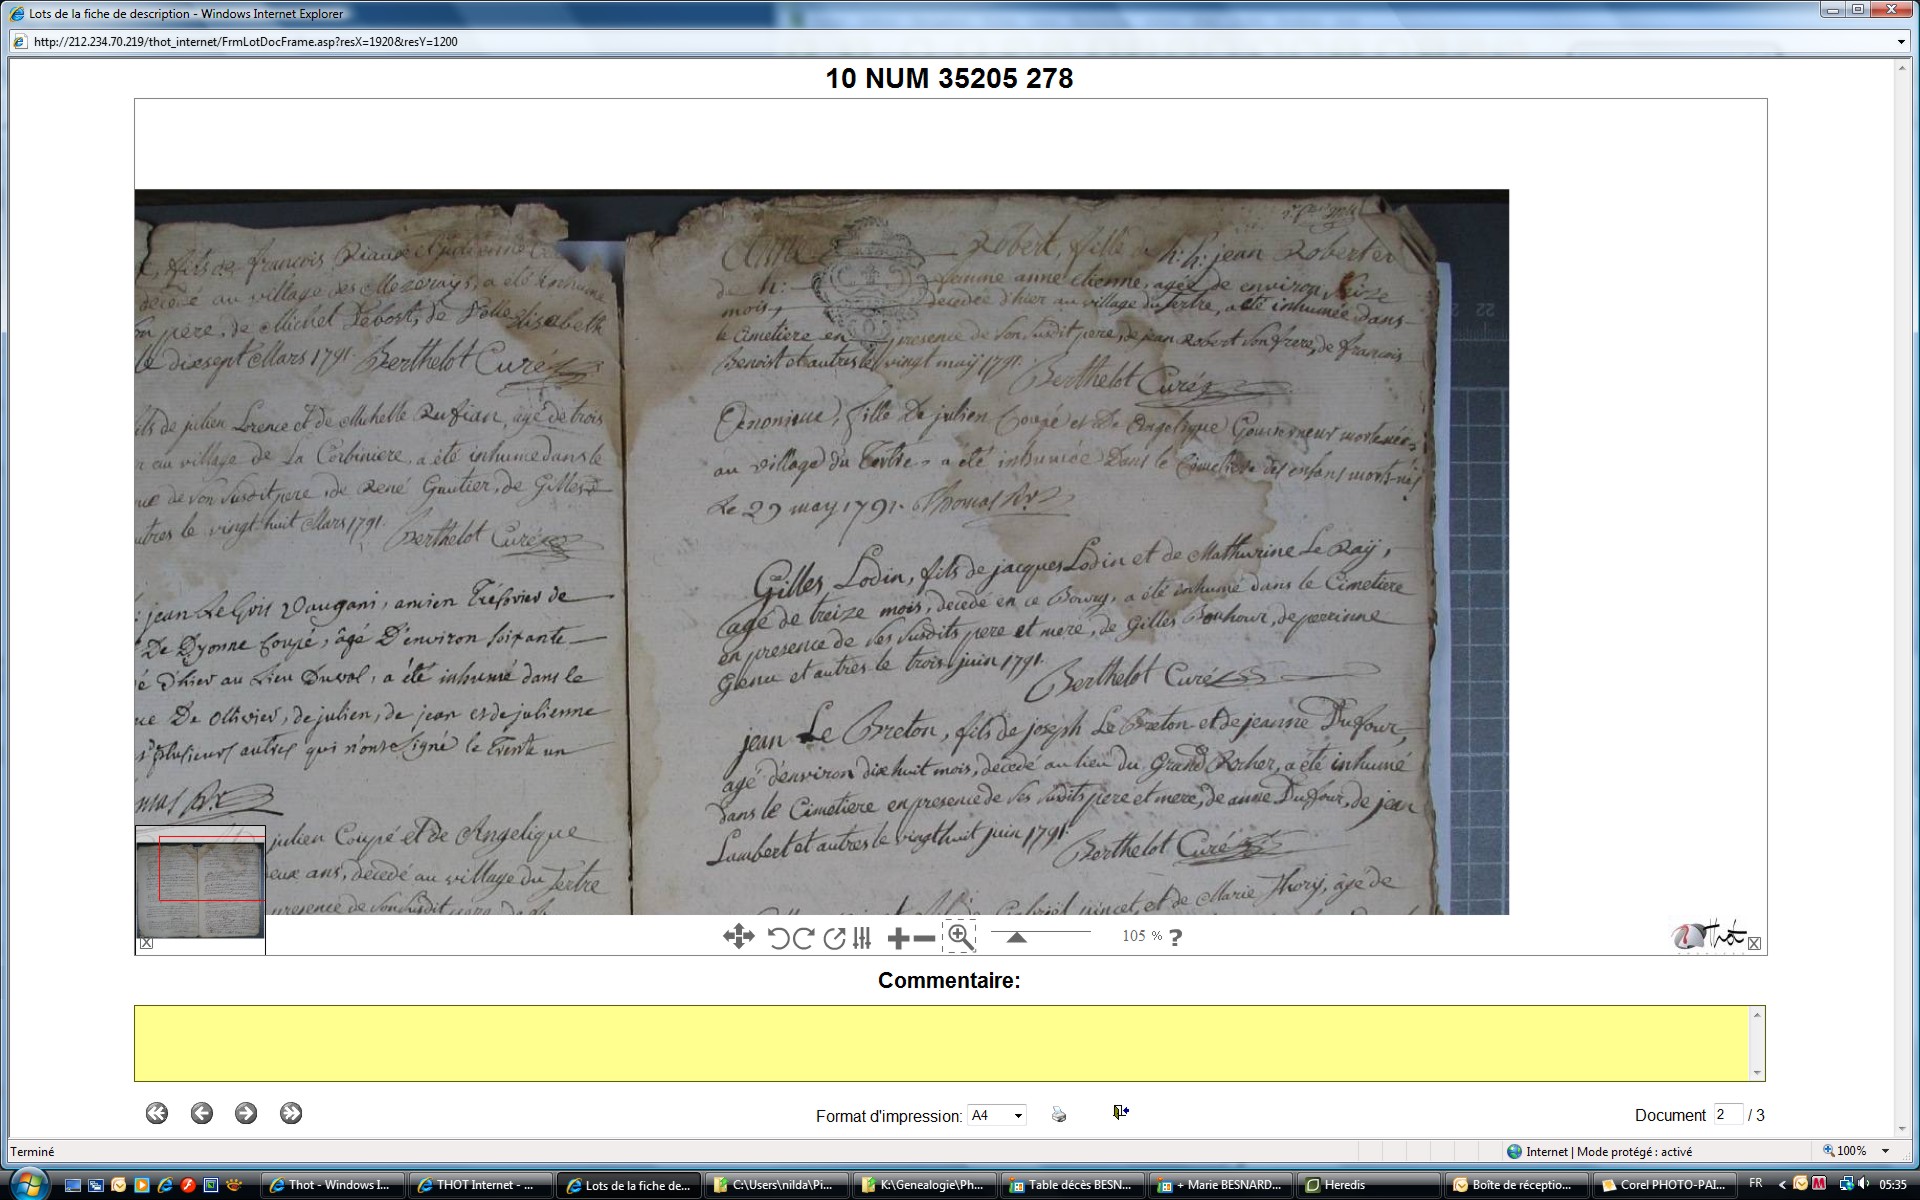 Lots de la fiche de description - Windows Internet Explorer
http://212.234.70.219/thot_internet/FrmLotDocFrame.asp?resX=1920&resY=1200
10 NUM 35205 278
fils de francois Riaux et julienne
decedé au village des Mezerays, a été inhumé
père, de Michel Lebost, de Elisabeth
le dixsept Mars 1791. Berthelot Curé
fils de julien Lorence et de Michelle Rufian, agé de trois
au village de La Corbiniere, a été inhumé dans le
de son susdit pere, de René Gautier, de Gilles
autres le vingt huit Mars 1791. Berthelot Curé
jean ancien Trésorier de
De Dyonne Coupé, âgé D'environ soixante
d'hier au Lieu Duval, a été inhumé dans le
De ollivier, de julien, de jean et de julienne
plusieurs autres qui n'ont signé le Trente un
julien Coupé et de Angelique
deux ans, decedé au village du Tertre
presence de son susdit
Anne Robert, fille de h: h: jean Robert et
de h: femme anne etienne, agée de environ seize
mois, decedée d'hier au village du Tertre, a été inhumée dans
le Cimetiere en presence de son susdit pere, de jean Robert son frere, de francois
Benoist et autres le vingt maÿ 1791. Berthelot Curé
fille De julien Coupé et De Angelique Gouverneur mortenée
au village du Tertre, a été inhumée Dans le Cimetiere des enfans morts-nés
Le 29 may 1791. Thomas
Gilles Lodin, fils de jacques Lodin et de Mathurine Le Raÿ,
agé de treize mois, decedé en ce Bourg, a été inhumé dans le Cimetiere
en presence de ses susdits pere et mere, de Gilles Bonhour, de perrinne
Genu et autres le trois juin 1791. Berthelot Curé
jean Le Breton, fils de joseph Le Breton et de jeanne Dufour,
agé d'environ dix huit mois, decedé au lieu du Grand Rocher, a été inhumé
dans le Cimetiere en presence de ses susdits pere et mere, de anne Dufour, de jean
Lambert et autres le vingt huit juin 1791. Berthelot Curé
Gabriel et de Marie Thorÿ, âgé de
105 % ?
Thot
Commentaire:
Format d'impression: A4
Document 2 / 3
Terminé
Internet | Mode protégé : activé
100%
Thot - Windows I...
THOT Internet - ...
Lots de la fiche de...
C:\Users\nilda\Pi...
K:\Genealogie\Ph...
Table décès BESN...
+ Marie BESNARD...
Heredis
Boîte de réceptio...
Corel PHOTO-PAI...
FR
05:35